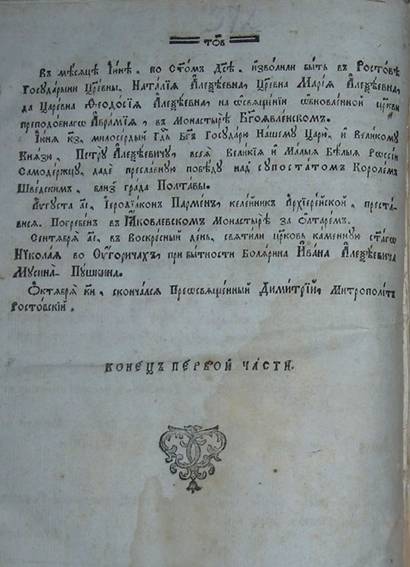 Въ мѣсяцѣ Іꙋнѣ, по Ст҃омъ Дс҃ѣ, изволили быть въ Ростовѣ
Государыни Цр҃евны, Наталїѧ Алеѯѣевна, Цр҃евна Марїа Алеѯѣевна,
да Царевна Ѳеодосїѧ Алеѯѣевна, на ѡсвѧщенїи ѡбновленной церкви
преподобнагѡ Авраамїа, въ Монастырѣ Бг҃оѧвленскомъ.
Іꙋнїа к҃з, милосердый Гд҃ь Бг҃ъ Государю Нашему Царю, и Великому
Кнѧзю, Петру Алеѯѣевичу, всеѧ Великїѧ и Малыѧ Бѣлыѧ Россїи
Самодержцу, даде преславную побѣду надъ супостатомъ Королемъ
Шведскимъ, близъ града Полтавы.
Аѵгуста Іеродїаконъ Парменъ, келейникъ Архїерейской, преста-
висѧ. Погребенъ въ Іаковлевскомъ Монастырѣ за Ѻлтаремъ.
Сентѧбрѧ въ Воскресный день, свѧтили церковь каменную ст҃агѡ
Нїколаѧ во Оугоричахъ, при бытности Болѧрина Ивана Алеѯѣевича
Мусина-Пушкина.
Ѻктѧбрѧ к҃и, скончалсѧ Преѡсвѧщенный Димитрїй, Митрополитъ
Ростовскїй.
КОНЕЦЪ ПЕРВОЙ ЧАСТИ.